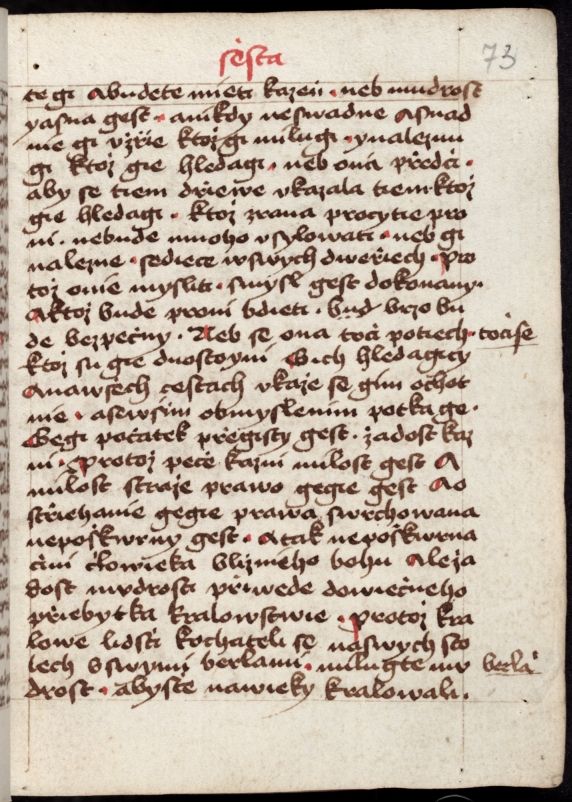 sėsta
73
te gi Abudete mieti kazen · neb mudrost
yasna gest · anikdy neswadne Asnad
nie gi vzřie ktož gi milugi · ynaleznu
gi ktož gie hledagi · neb ona předči ·
aby se tiem dřiewe vkazala tiem · ktož
gie hledagi · ktož zrana procytie pro
ni · nebude mnoho vsylowati · neb gi
nalezne · sediece wswych dweřiech · pro
tož onie mysliti · smysl gest dokonany ·
Aktož bude proni bdieti · bud brzo bu
de bezpečny · Neb se ona točí potiech · točíse
ktož su gie duostoyni Gich hledagicy
Anawsech cestach vkaže se gim ochot
nie · asewsim obmyslenim potka ge ·
Gegi počatek přegisty gest · žadost kaz
ni · Protož peče kazni milost gest A
milost straže prawo gegie gest Ao
střiehanie gegie prawa swrchowana
nepoškwrny gest · Atak nepoškwrna
činí člowieka blizneho bohu Aleža
dost mudrosti přiwede dowiečneho
přiebytka kralowstwie · Protož kra
lowe lidští kochateli se naswych sto
lech Gswymi berlami · milugte mu berlá
drost · abyšte nawieky kralowali ·